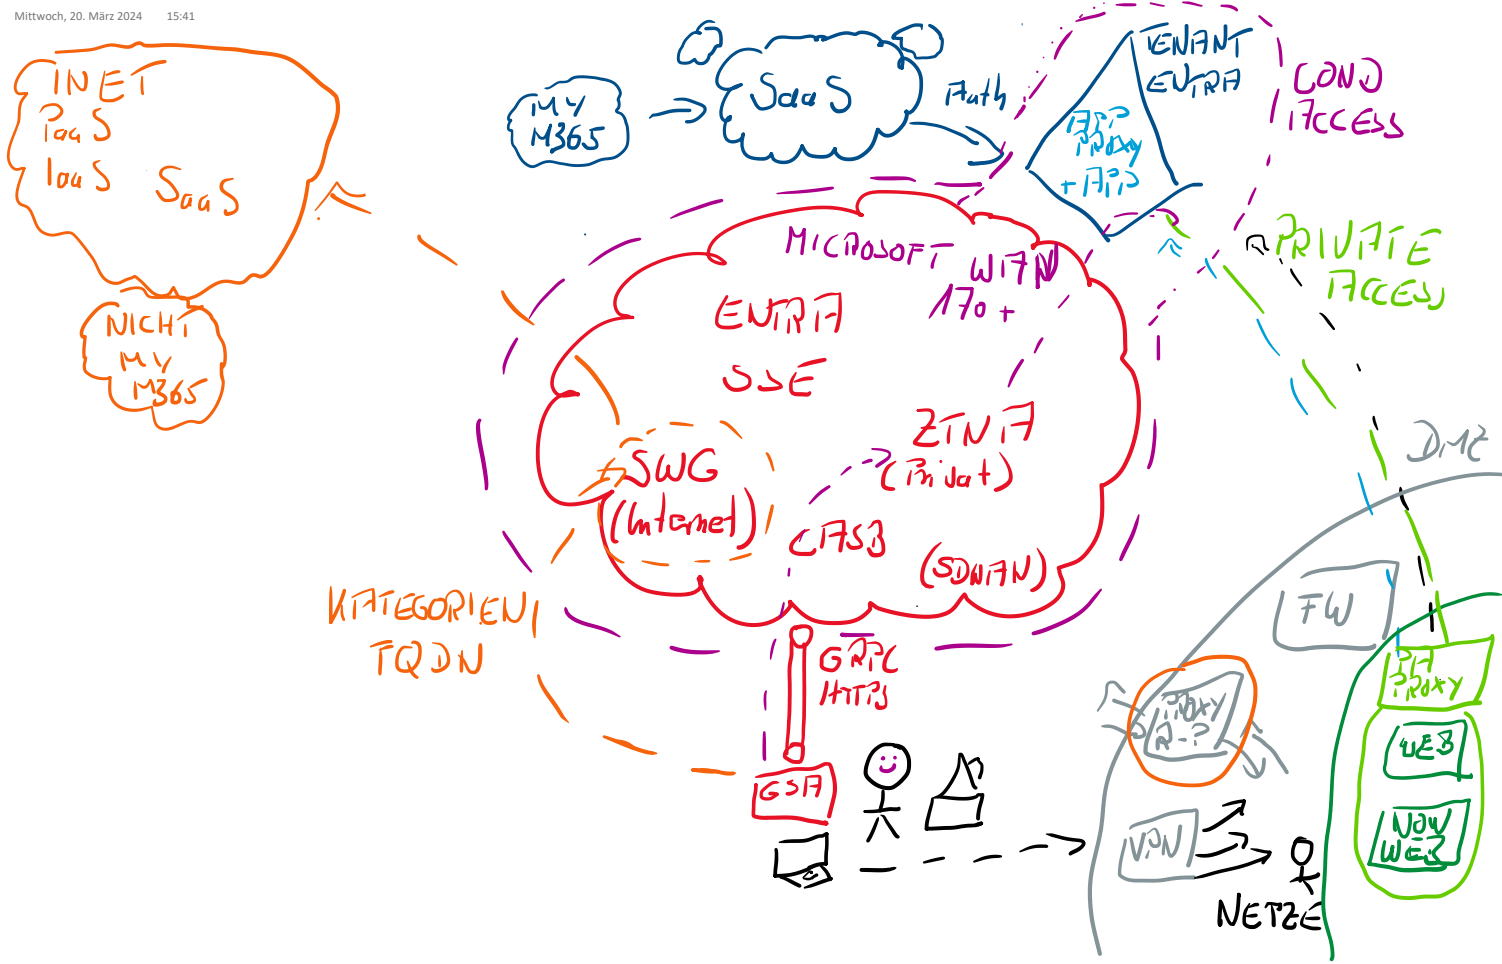 Mittwoch, 20. März 2024 15:41
INET
PaaS
IaaS
SaaS
NICHT
MY
M365
MY
M365
SaaS
Auth
TENANT
ENTRA
APP
PROXY
+ APP
COND
ACCESS
PRIVATE
ACCESS
MICROSOFT WAN
170 +
ENTRA
SSE
ZTNA
(Privat)
SWG
(Internet)
CASB
(SDWAN)
KATEGORIEN/
TQDN
GRPC
HTTPS
GSA
DMZ
FW
PROXY
R-P
VPN
NETZE
PA
PROXY
WEB
NOW
WEB